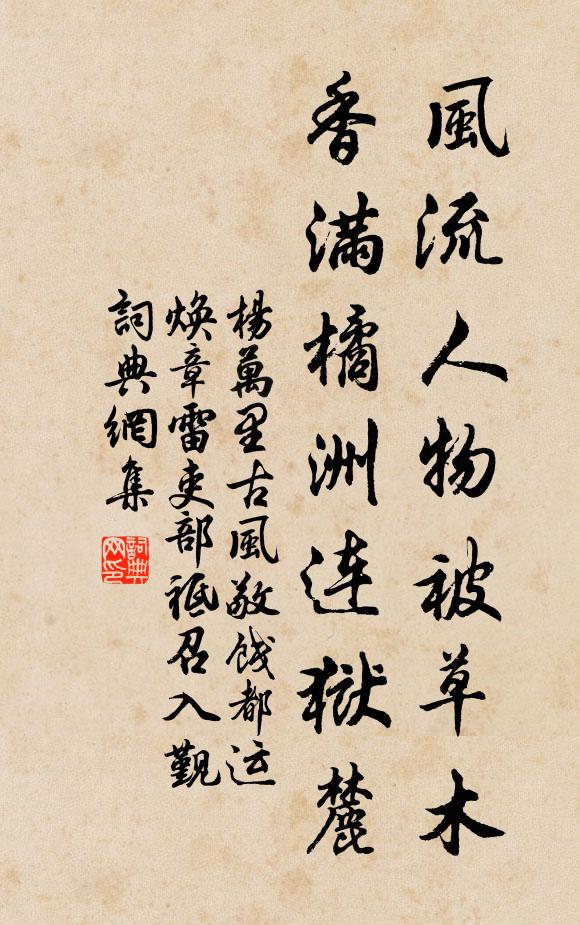 風流人物被草木
香滿橘洲連獄麓
楊萬里古風敬餞都运
煥章雷吏部祗召入觐
詞典網集
詞典
网印